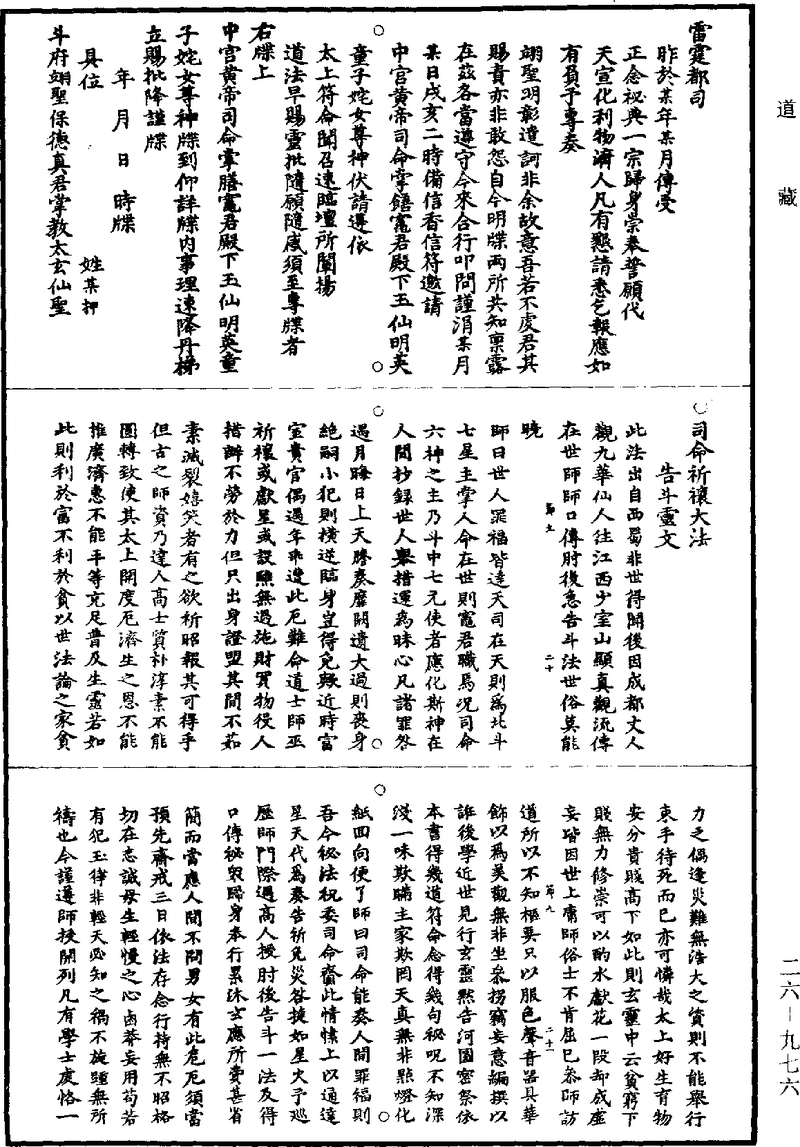 道藏
雷霆都司
昨於某年某月傳受
正念祕典一宗歸身崇奉誓願代
天宣化利物濟人凡有懇請悉乞報應如
有負予專奏
翊聖明彰遣訶非余故意吾若不虔君其
賜責亦非敢怨自今明牒兩所共知稟露
在茲各當遵守今來合行叩問謹涓某月
某日戌亥二時備信香信符邀請
中宮黃帝司命掌饍竈君殿下玉仙明英
童子姹女尊神伏請遵依
太上符命開召速臨壇所闡揚
道法早賜靈批隨願隨感須至專牒者
右牒上
中宮黃帝司命掌膳竈君殿下玉仙明英童
子姹女尊神牒到仰詳牒內事理速降丹梯
立賜批降謹牒
年月日時牒
具位 姓某押
斗府翊聖保德真君掌教太玄仙聖
○司命祈禳大法
告斗靈文
此法出自西蜀非世得聞後因成都丈人
觀九華仙人往江西少室山顯真觀流傳
在世師師口傳肘後急告斗法世俗莫能
曉
第九 二十
師曰世人罪福皆達天司在天則為北斗
七星主掌人命在世則竈君職焉況司命
六神之主乃斗中七元使者應化斯神在
人間抄錄世人舉措運為昧心凡諸罪咎
遇月晦日上天謄奏靡闕遺大過則喪身
絕嗣小犯則橫逆臨身豈得免歟近時富
室貴官偶遇年乖遭此厄難命道士師巫
祈禳或獻星或設醮無過施財買物役人
措辦不勞於力但只出身證盟其間不茹
素減裂嬉笑者有之欲祈昭報其可得乎
但古之師資乃達人高士質朴淳素不能
圓轉致使其太上開度厄濟生之恩不能
推廣濟惠不能平等充足普及生靈若如
此則利於富不利於貧以世法論之家貧
力乏偶逢災難無浩大之貲則不能舉行
束手待死而已亦可憐哉太上好生育物
安分貴賤高下如此則玄靈中云貧窮下
賤無力修崇可以酌水獻花一段却成虛
妄皆因世上庸師俗士不肯屈己參師訪
道所以不知樞要只以服色聲音器具華
第九 二十一
飾以為美觀無非坐參拐竊妄意編撰以
誑後學近世見行玄靈默告河圖密祭依
本書得幾道符命念得幾句秘呪不知深
淺一味欺瞞主家欺罔天真無非點燈化
紙四向便了師曰司命能奏人間罪福則
吾今秘法祝委司命齎此情愫上以通達
星天代為奏告祈免災咎捷如星火予巡
歷師門際遇高人授肘後告斗一法及得
口傳秘衮歸身奉行累沐玄應所費甚省
簡而當應人間不問男女有此危厄須當
預先齋戒三日依法存念行持無不昭格
切在志誠毋生輕慢之心鹵莽妄用苟若
有犯玉律非輕天必知之禍不旋踵無所
禱也今謹遵師授開列凡有學士虔恪一
二六－九七六